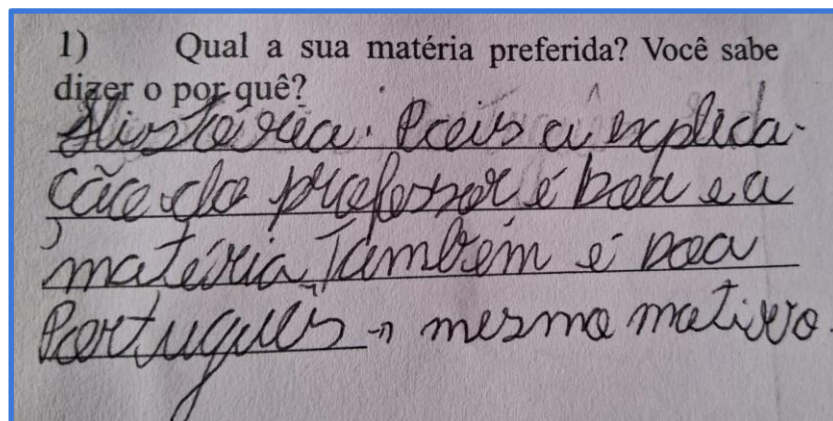 1) Qual a sua matéria preferida? Você sabe
dizer o por quê?
História. Pois a explica-
ção do professor é boa e a
matéria Também é boa
Português → mesmo motivo.